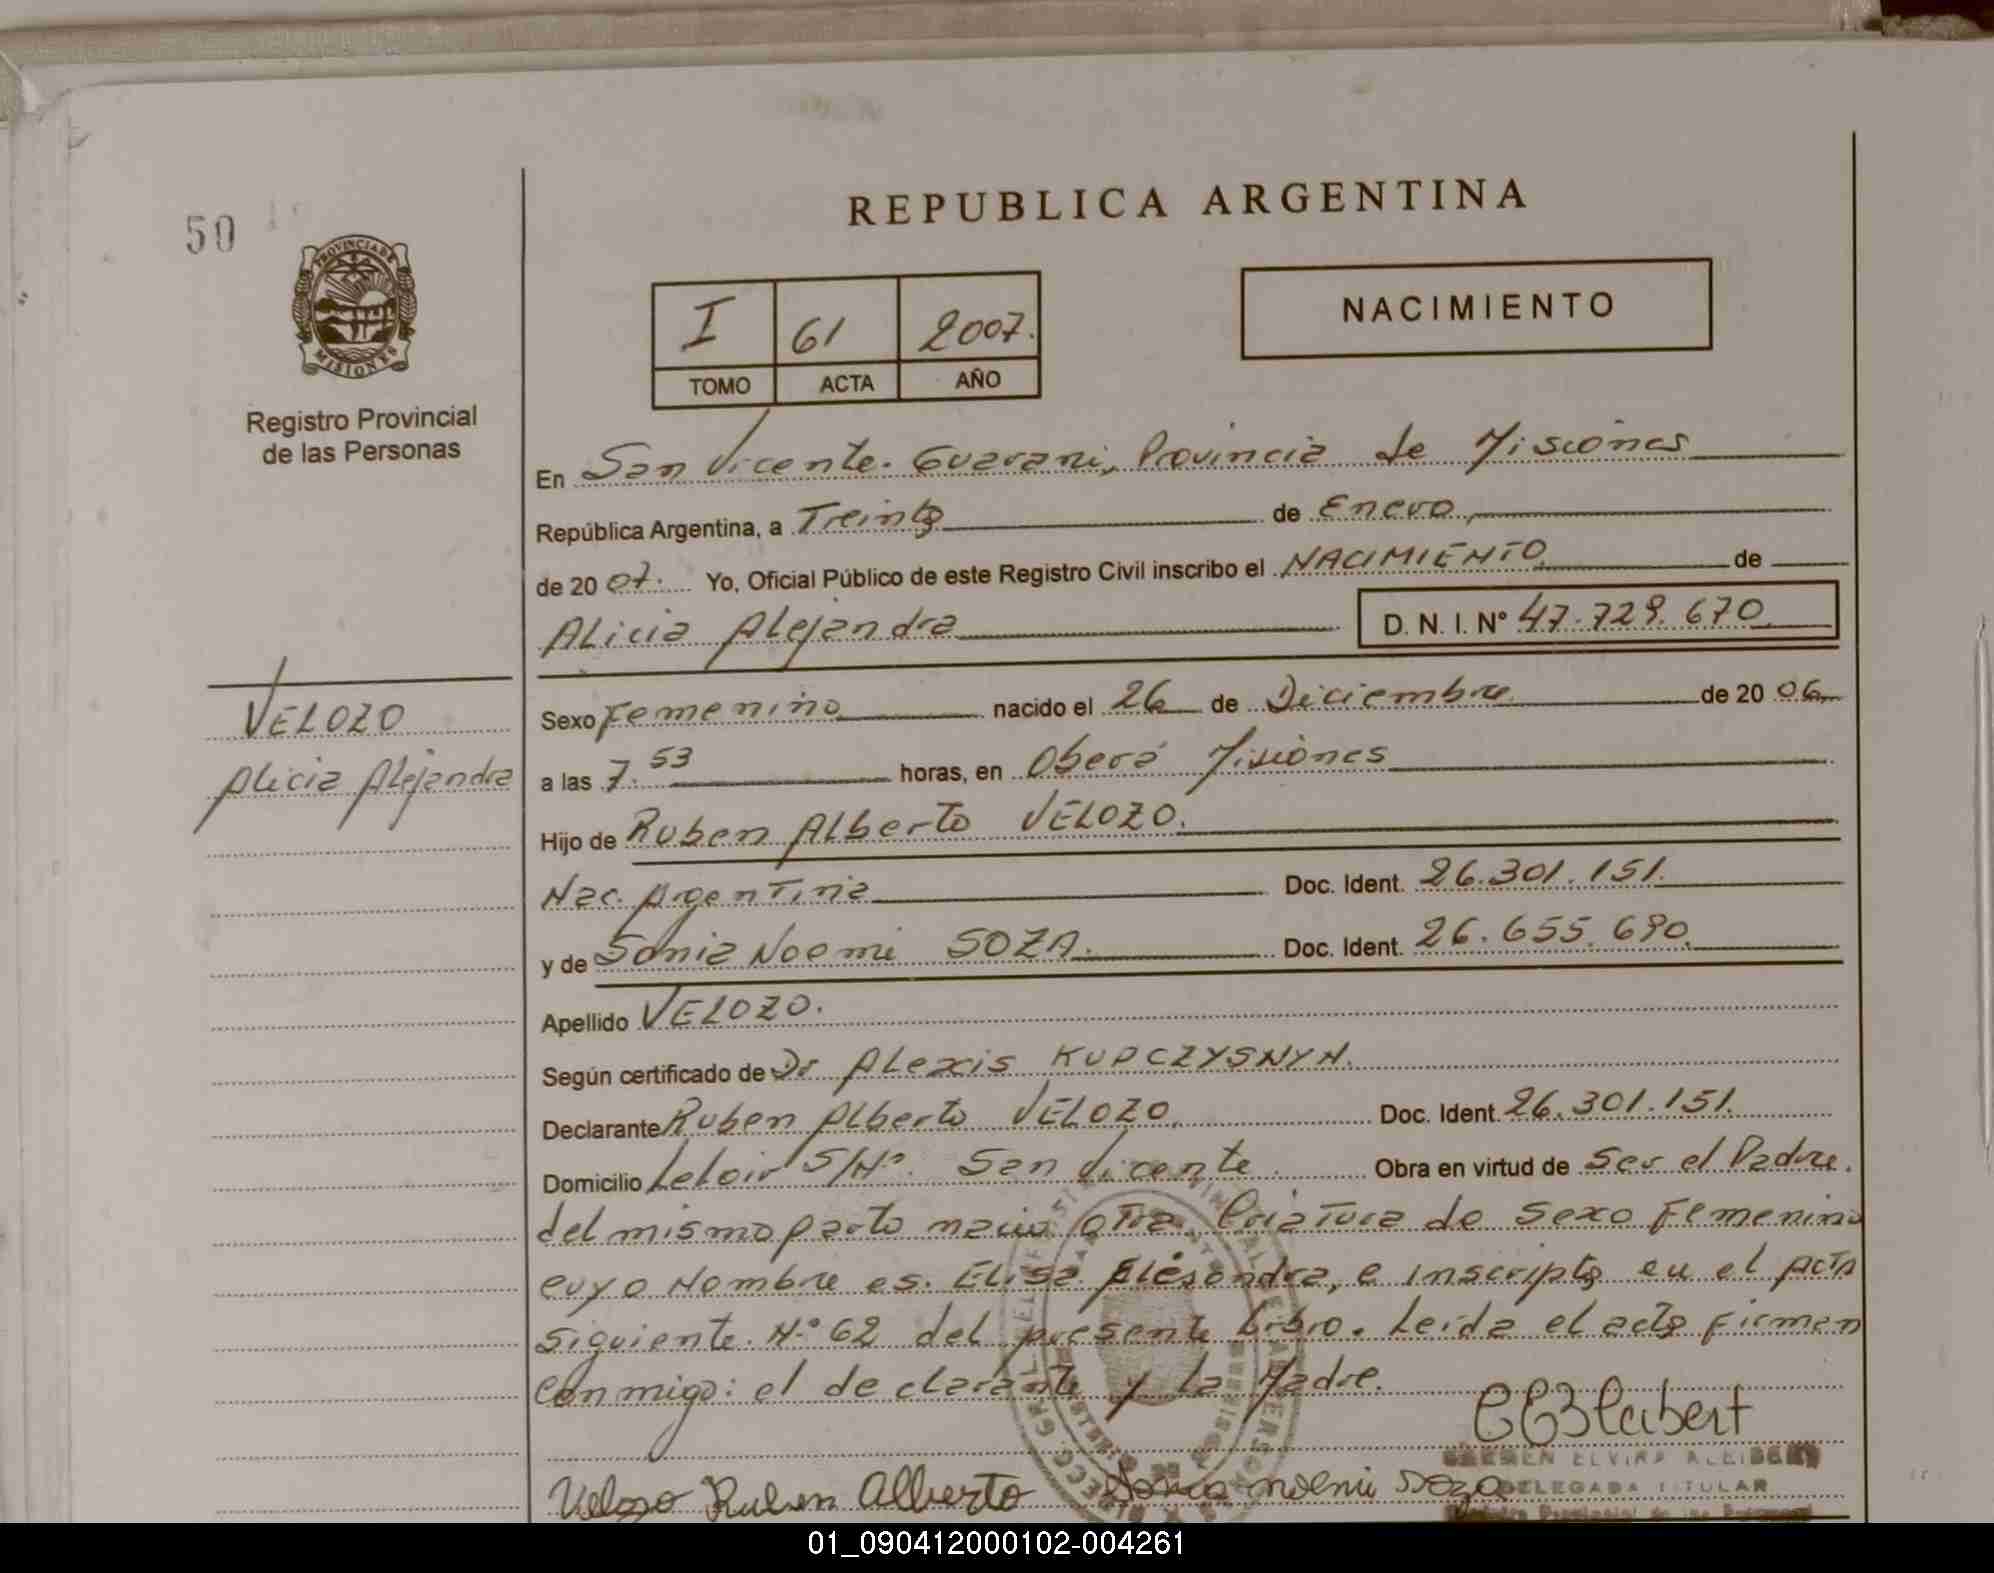 REPUBLICA ARGENTINA
50
PROVINCIA DE
MISIONES
Registro Provincial
de las Personas
I 61 2007.
TOMO ACTA AÑO
NACIMIENTO
En San Vicente. Guarani, Provincia de Misiones
República Argentina, a Treinta de Enero,
de 20 07. Yo, Oficial Público de este Registro Civil inscribo el NACIMIENTO de
Alicia Alejandra D. N. I. Nº 47.729.670
VELOZO
Alicia Alejandra
Sexo Femenino nacido el 26 de Diciembre de 20 06
a las 7.53 horas, en Oberá Misiones
Hijo de Ruben Alberto VELOZO.
Nac. Argentina Doc. Ident. 26.301.151.
y de Sonia Noemi SOZA. Doc. Ident. 26.655.690
Apellido VELOZO.
Según certificado de Dr Alexis KUPCZYSNYN.
Declarante Ruben Alberto VELOZO. Doc. Ident. 26.301.151.
Domicilio Leloir S/Nº. San Vicente. Obra en virtud de Ser el Padre.
del mismo parto nacio otra Criatura de Sexo Femenino
cuyo Nombre es. Elisa Alesandra, e inscripta en el Acta
siguiente Nº 62 del presente Libro. Leida el acta firman
Conmigo: el declarante y la Madre.
Velozo Ruben Alberto Sonia noemi Soza
DELEGADA TITULAR
01_090412000102-004261